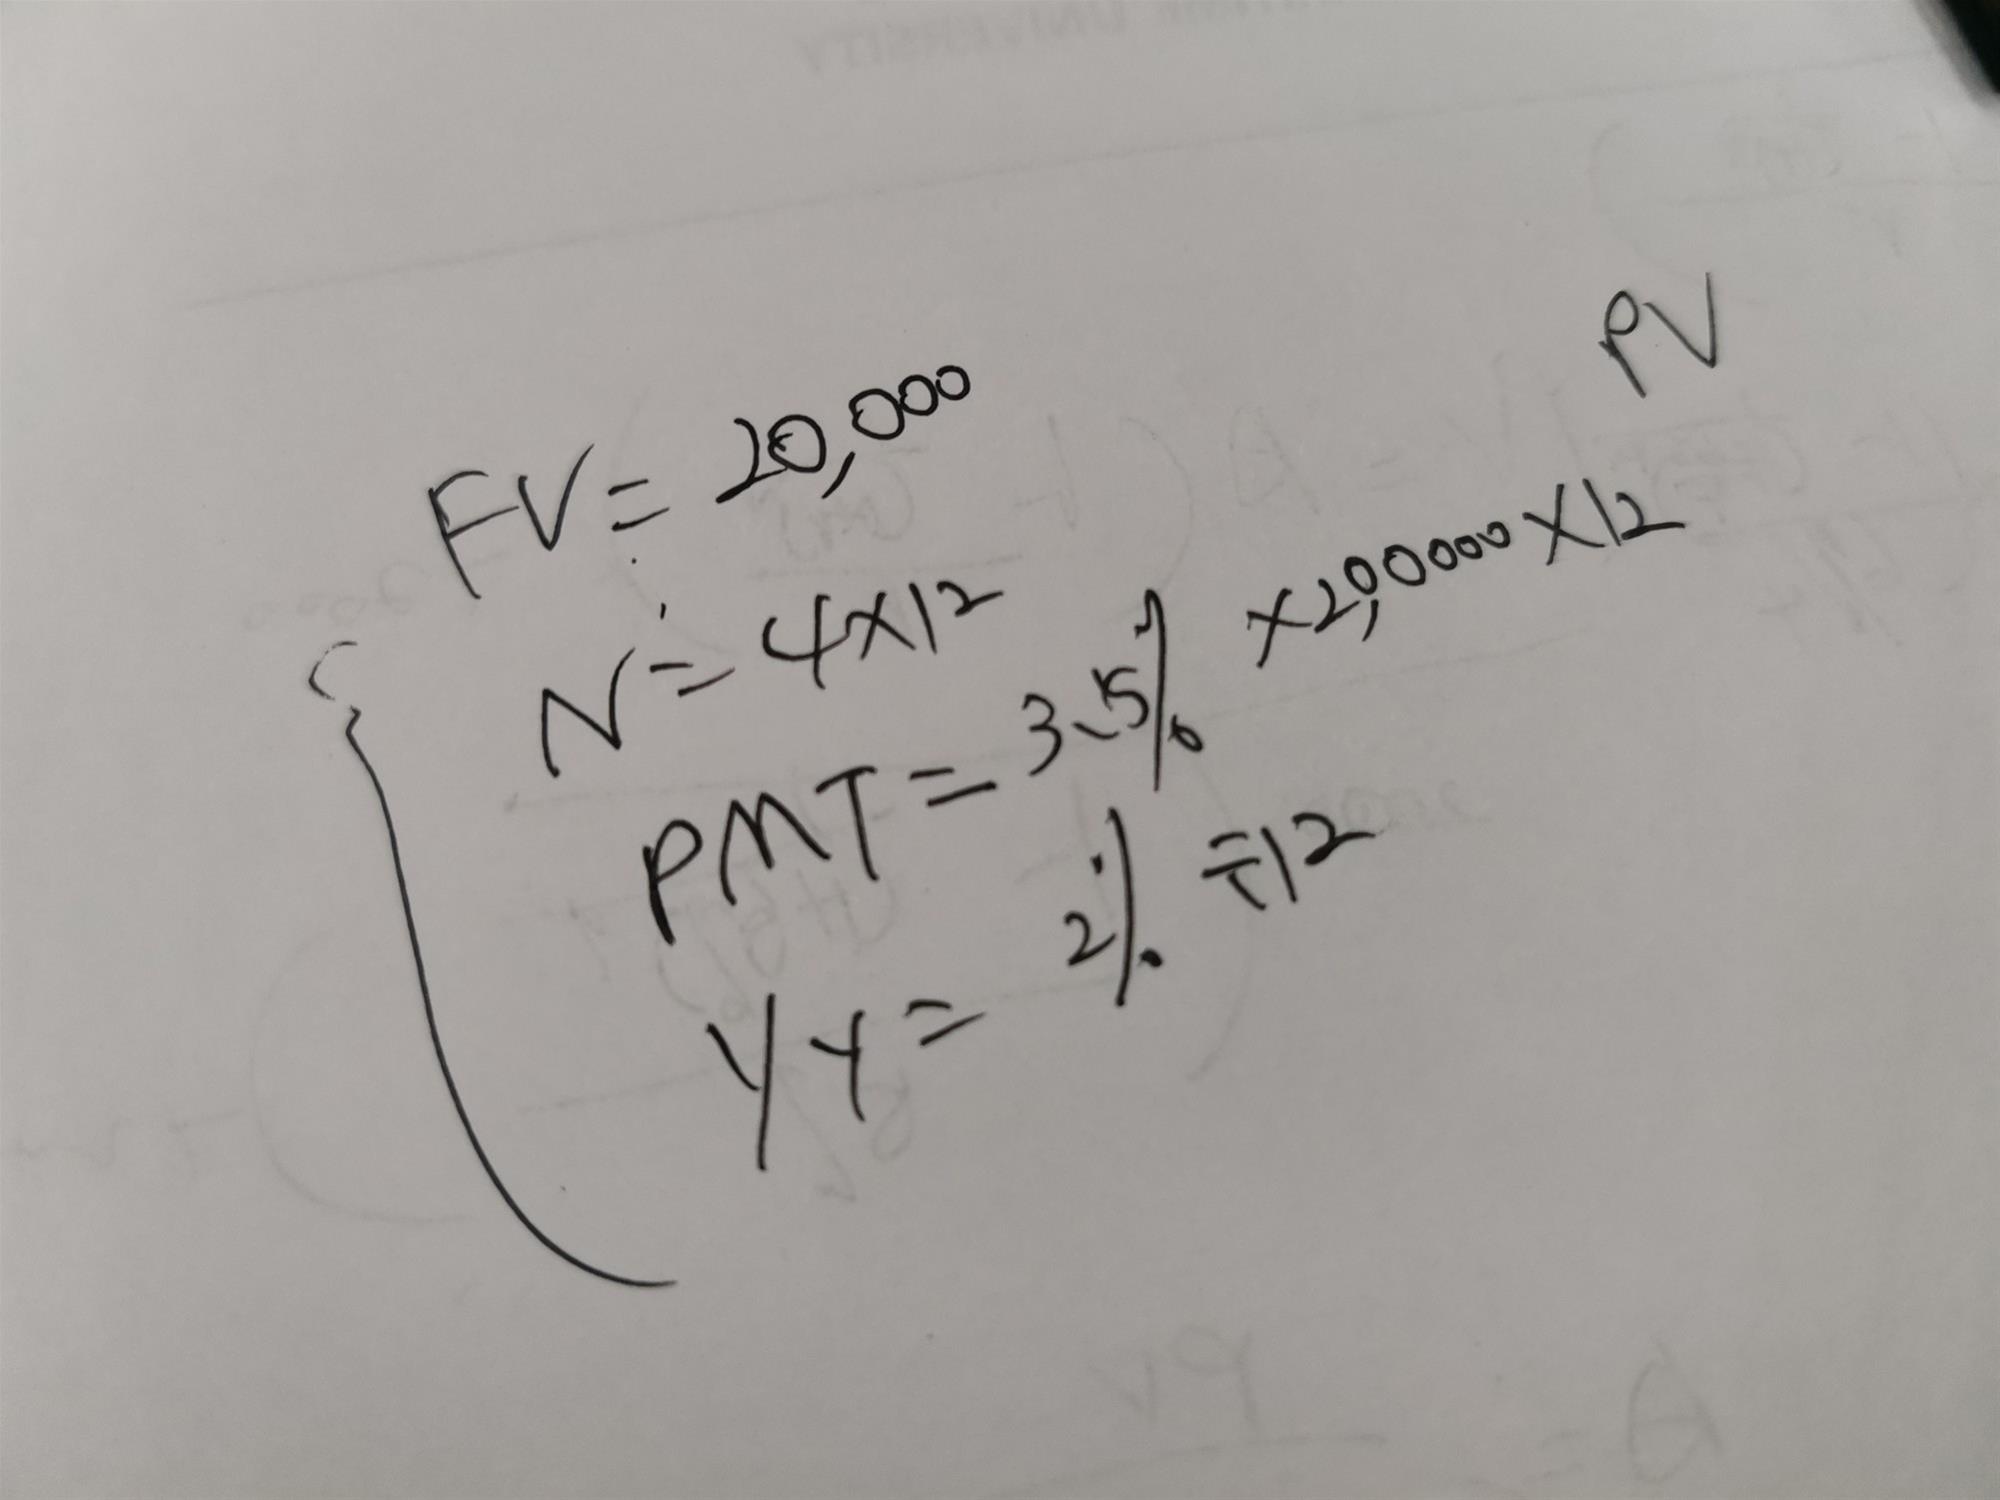 PV
FV = 20,000
N = 4×12
PMT = 3.5% ×20,0000 ×12
YY = 2% ÷12